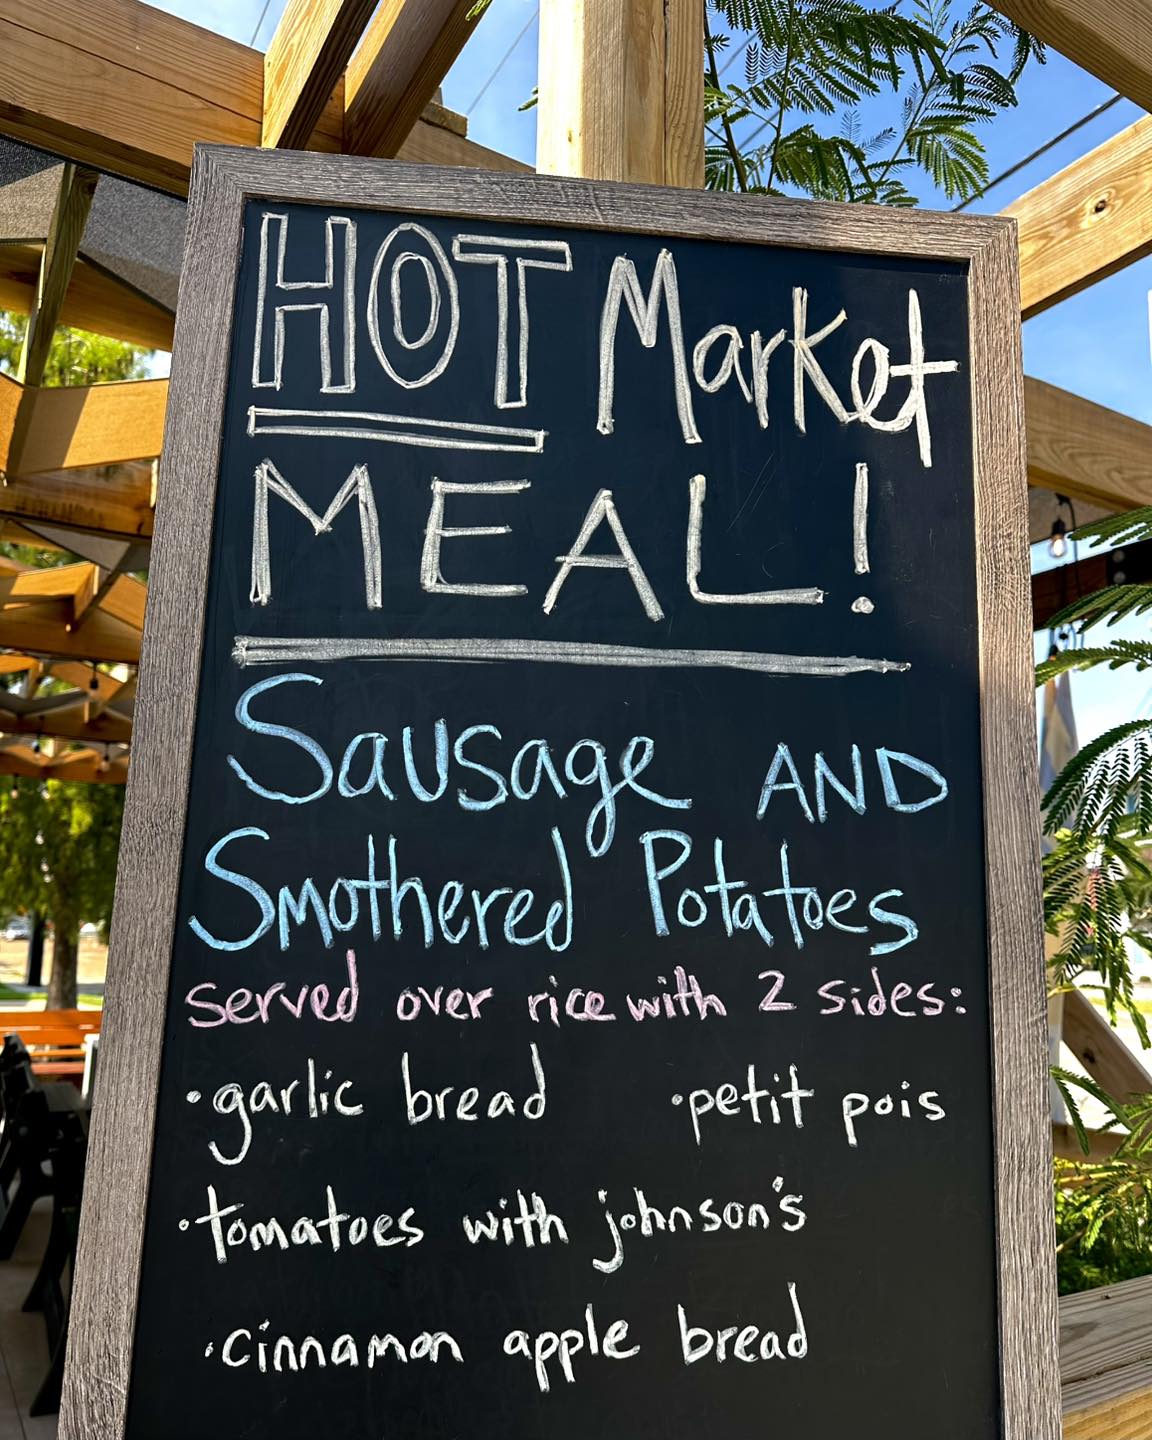 HOT Market
MEAL!
Sausage AND
Smothered Potatoes
served over rice with 2 sides:
•garlic bread •petit pois
•tomatoes with johnson's
•cinnamon apple bread